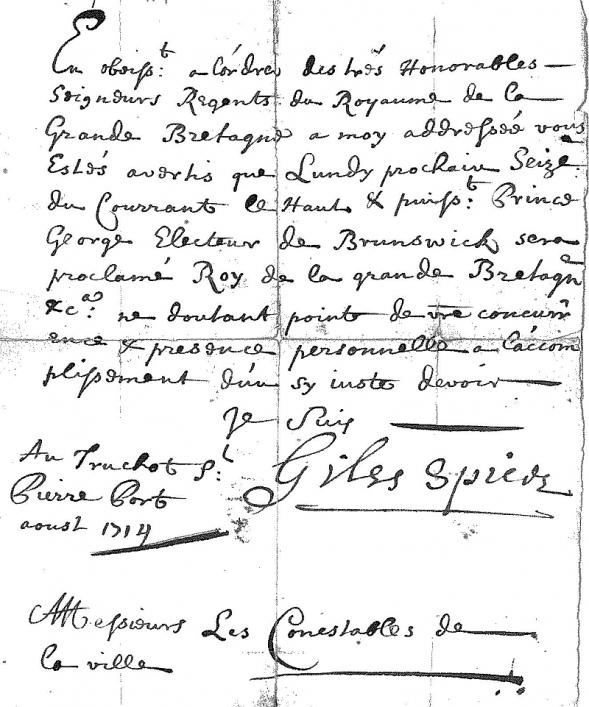 En obeisst: a l'ordre des trés Honorables
Seigneurs Regents du Royaume de la
Grande Bretagne a moy addressée vous
Estés avertis que Lundy prochain Seize:
du Courrant le Haut & puisst: Prince
George Electeur de Brunswick sera
proclamé Roy de la grande Bretagne
&ca: ne doutant point de vre concurr
ence & presence personnelle a l'accom
plissement d'un sy iuste devoir
Je Suis
Giles Spicer
Au Truchot St:
Pierre Port
aoust 1714
Messieurs Les Conestables de
la ville